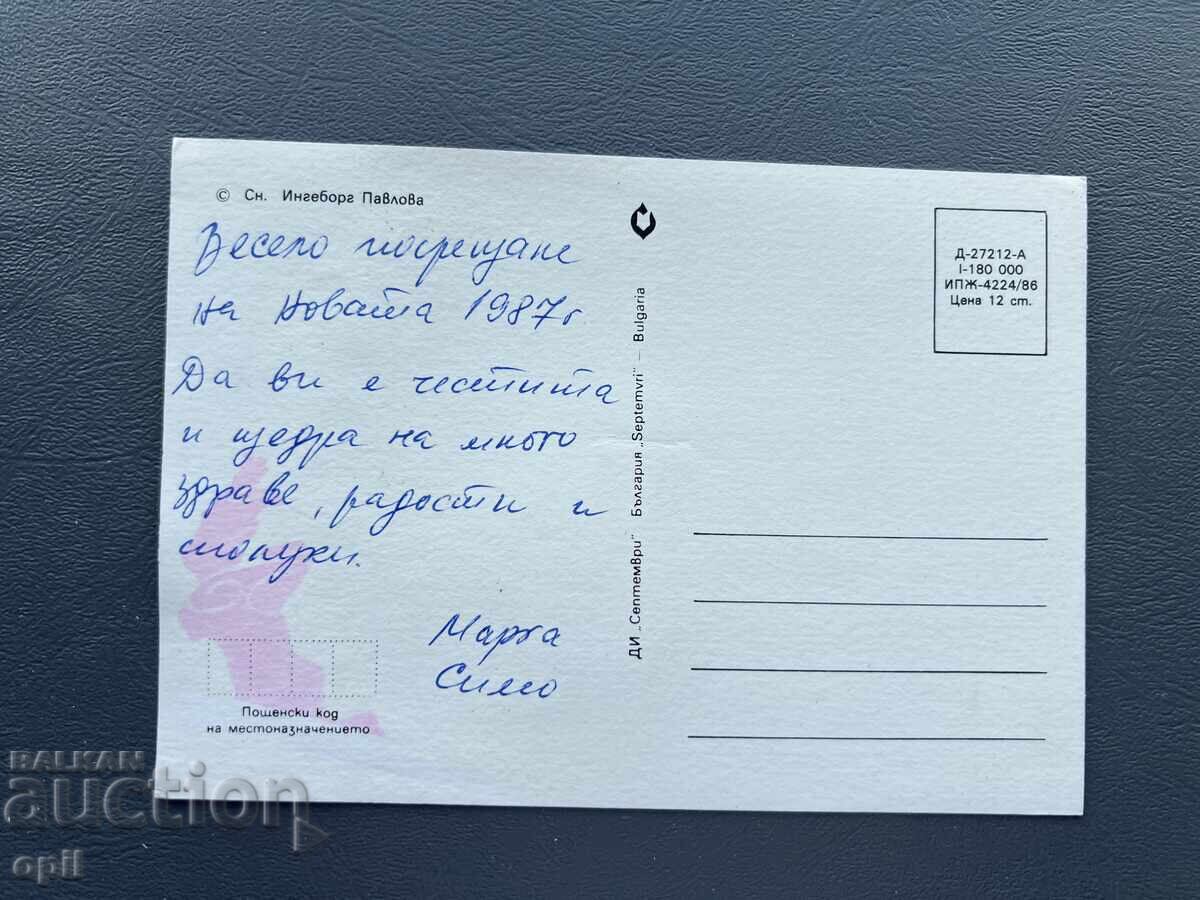 © Сн. Ингеборг Павлова
Весело посрещане
на Новата 1987 г.
Да ви е честита
и щедра на много
здраве, радости и
сполуки.
Марта
Симо
Пощенски код
на местоназначението
ДИ „Септември" България „Septemvri" — Bulgaria
Д-27212-А
I-180 000
ИПЖ-4224/86
Цена 12 ст.
BALKAN
auction
opil